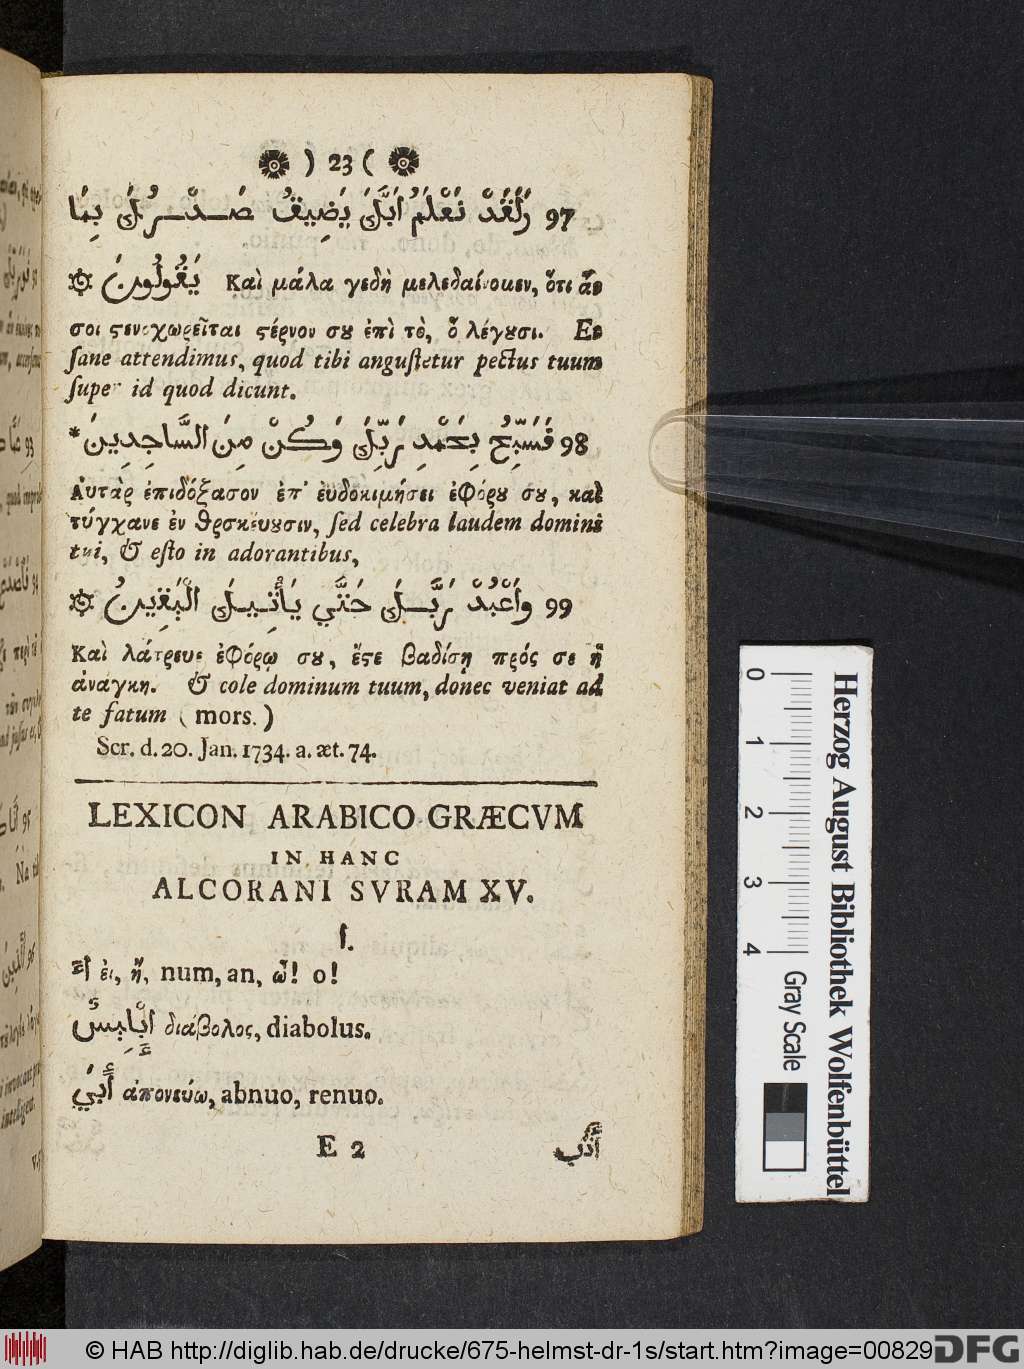 ) 23 (
97 وَلَقَدْ نَعْلَمُ اَنَّكَ يَضِيقُ صَدْرُكَ بِمَا
يَقُولُونَ Καὶ μάλα γεδὴ μελεδαίνομεν, ὅτι
σοι ϛενοχωρεῖται ϛέρνον σȣ ἐπὶ τὸ, ὃ λέγȣσι. Et
ſane attendimus, quod tibi anguſtetur pectus tuum
ſuper id quod dicunt.
98 فَسَبِّحْ بِحَمْدِ رَبِّكَ وَكُنْ مِنَ السَّاجِدِينَ *
Αυτὰρ ἐπιδόξασον ἐπ' ἐυδοκιμήσει ἐφόρȣ σȣ, καὶ
τύγχανε ἐν θρσκεύȣσιν, ſed celebra laudem domini
tui, & eſto in adorantibus,
99 وَاَعْبُدْ رَبَّكَ حَتَّي يَأْتِيكَ الْيَقِينُ
Καὶ λάτρευε ἐφόρῳ σȣ, ἔϛε βαδίσῃ πρός σε ἡ
ἀνάγκη. & cole dominum tuum, donec veniat ad
te fatum (mors.)
Scr. d. 20. Jan. 1734. a. æt. 74.
LEXICON ARABICO GRÆCVM
IN HANC
ALCORANI SVRAM XV.
ا.
أَ ἐι, ἢ, num, an, ὦ! o!
إِبْلِيسُ διάβολος, diabolus.
أَبَي ἀπονεύω, abnuo, renuo.
E 2
Herzog August Bibliothek Wolfenbüttel
0 1 2 3 4
Gray Scale
© HAB http://diglib.hab.de/drucke/675-helmst-dr-1s/start.htm?image=00829
DFG